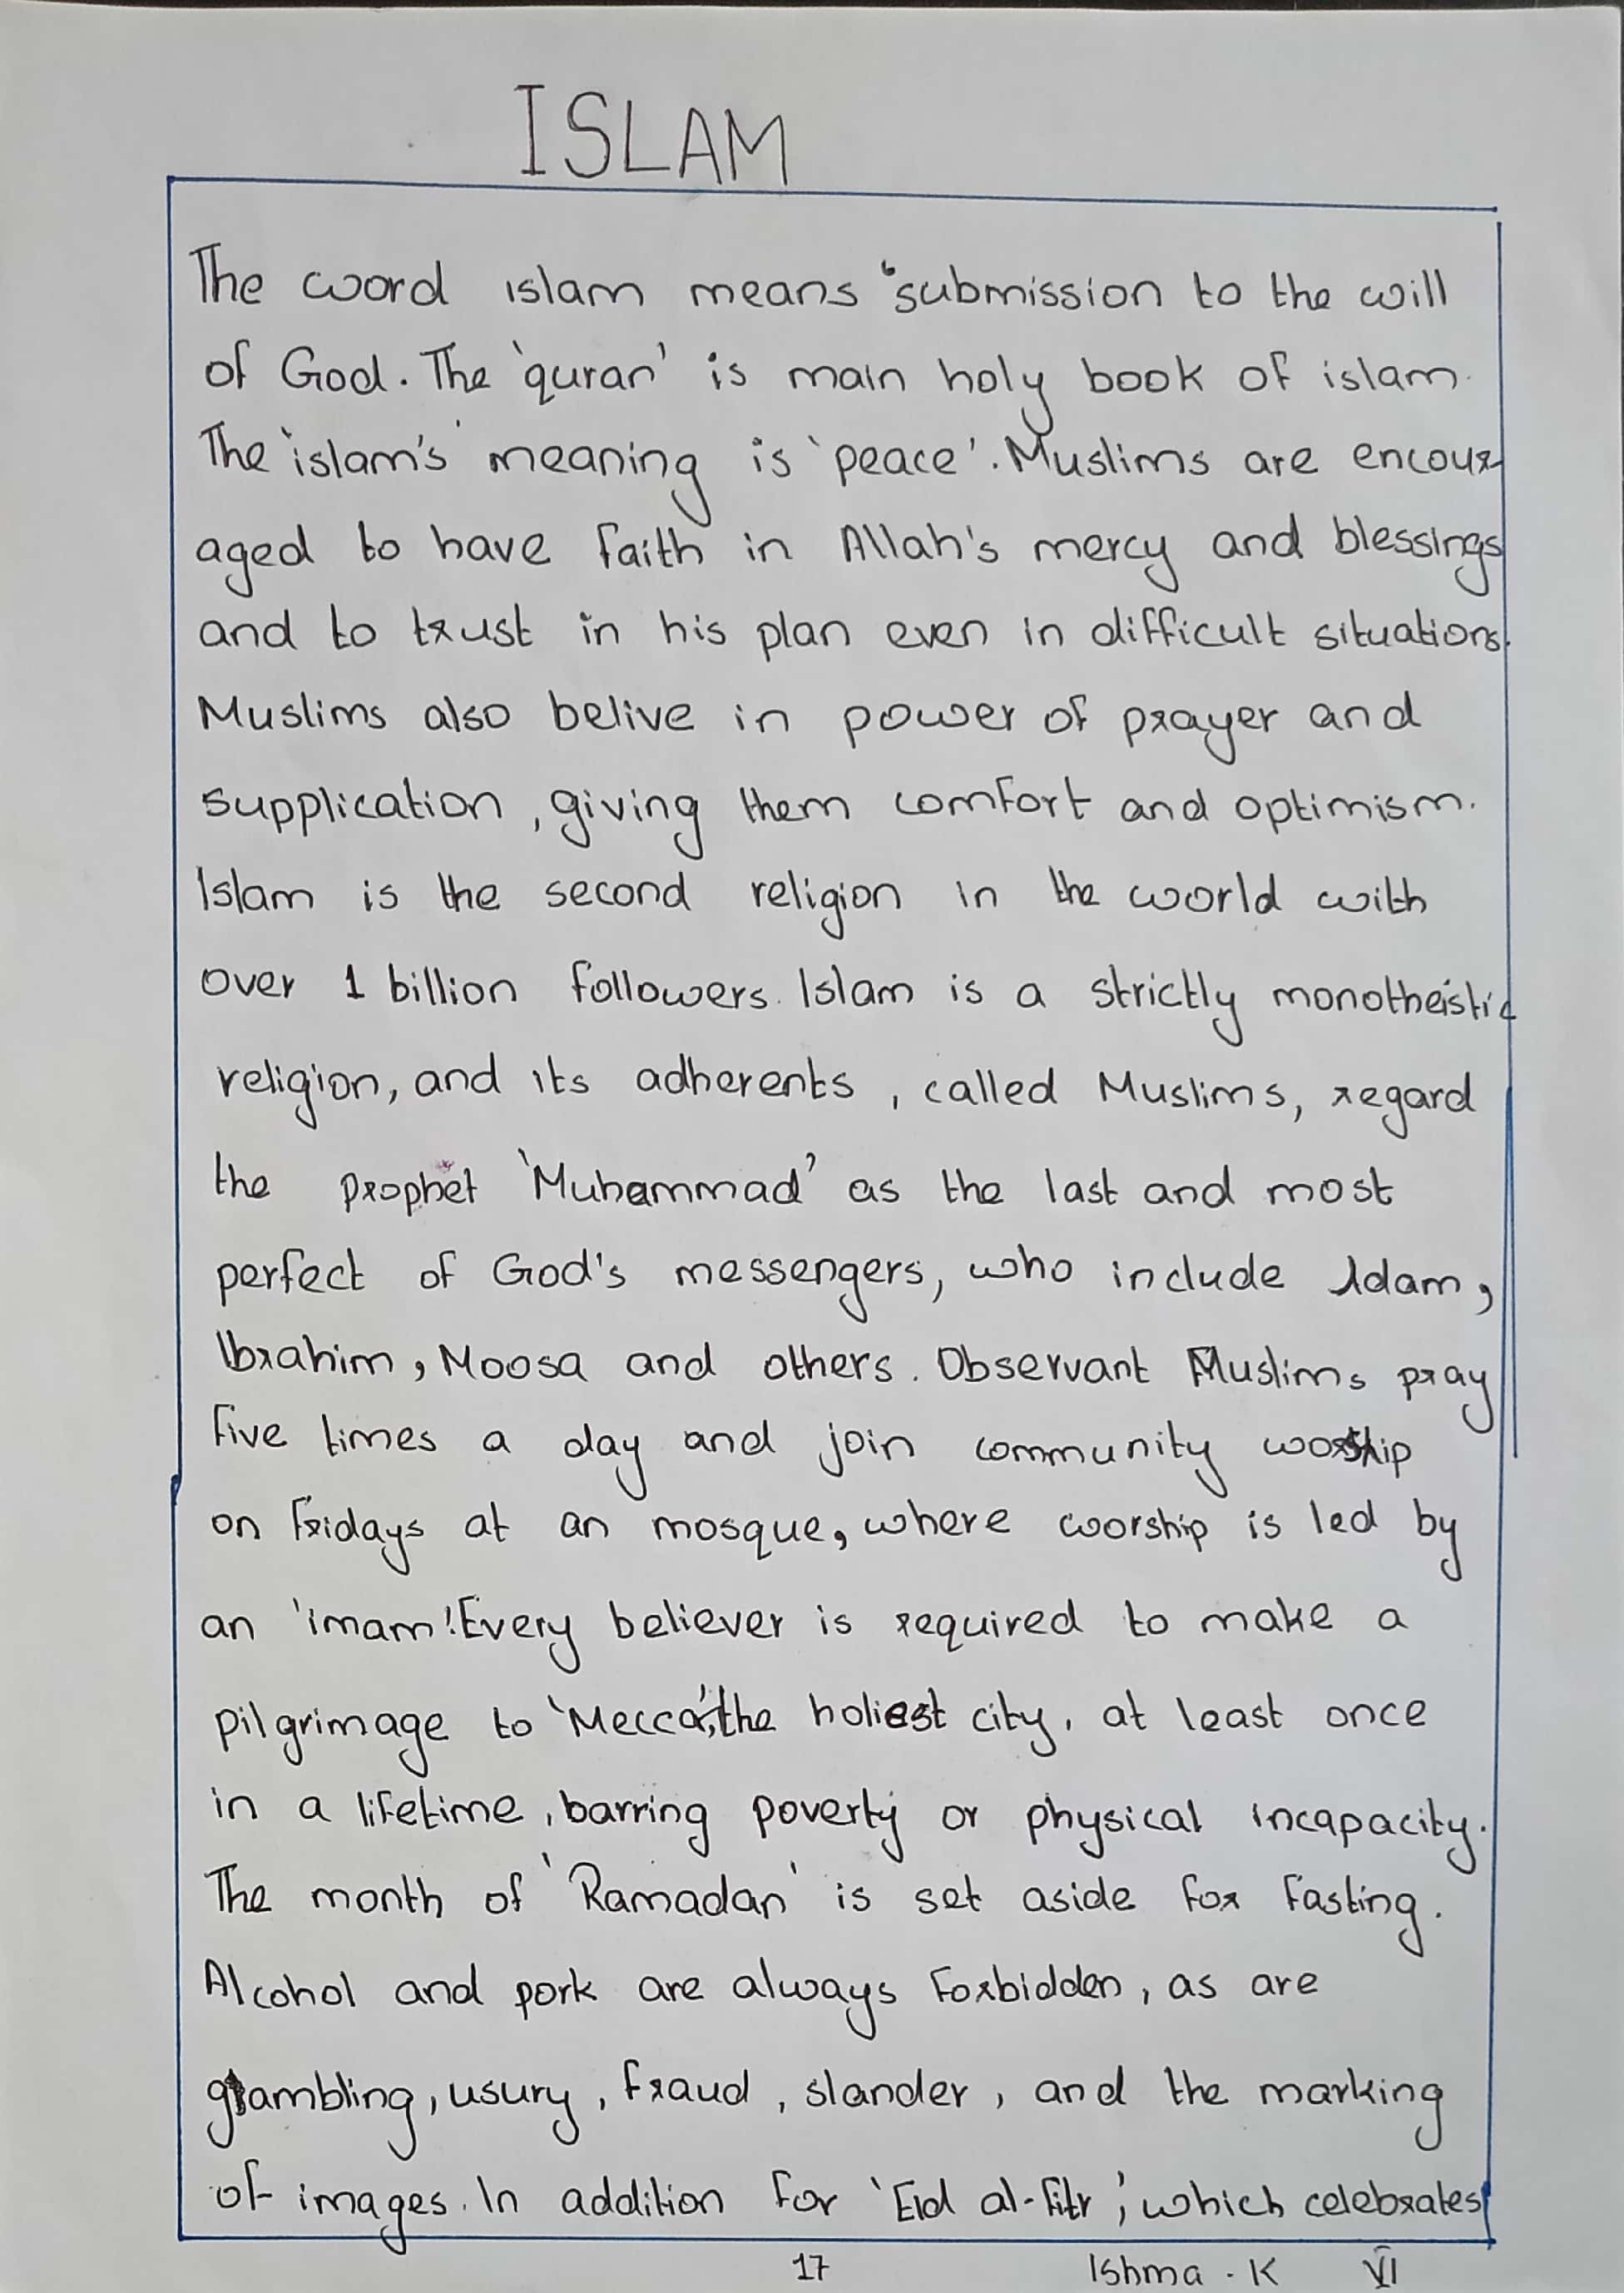 ISLAM
The word islam means 'submission to the will
of God. The 'quran' is main holy book of islam.
The 'islam's' meaning is 'peace'. Muslims are encour
aged to have faith in Allah's mercy and blessings
and to trust in his plan even in difficult situations.
Muslims also belive in power of prayer and
supplication, giving them comfort and optimism.
Islam is the second religion in the world with
over 1 billion followers. Islam is a strictly monotheistic
religion, and its adherents, called Muslims, regard
the prophet 'Muhammad' as the last and most
perfect of God's messengers, who include Adam,
Ibrahim, Moosa and others. Observant Muslims pray
five times a day and join community worship
on Fridays at an mosque, where worship is led by
an 'imam'. Every believer is required to make a
pilgrimage to 'Mecca', the holiest city, at least once
in a lifetime, barring poverty or physical incapacity.
The month of 'Ramadan' is set aside for fasting.
Alcohol and pork are always forbidden, as are
gambling, usury, fraud, slander, and the marking
of images. In addition for 'Eid al-fitr', which celebrates
17 Ishma. K VI